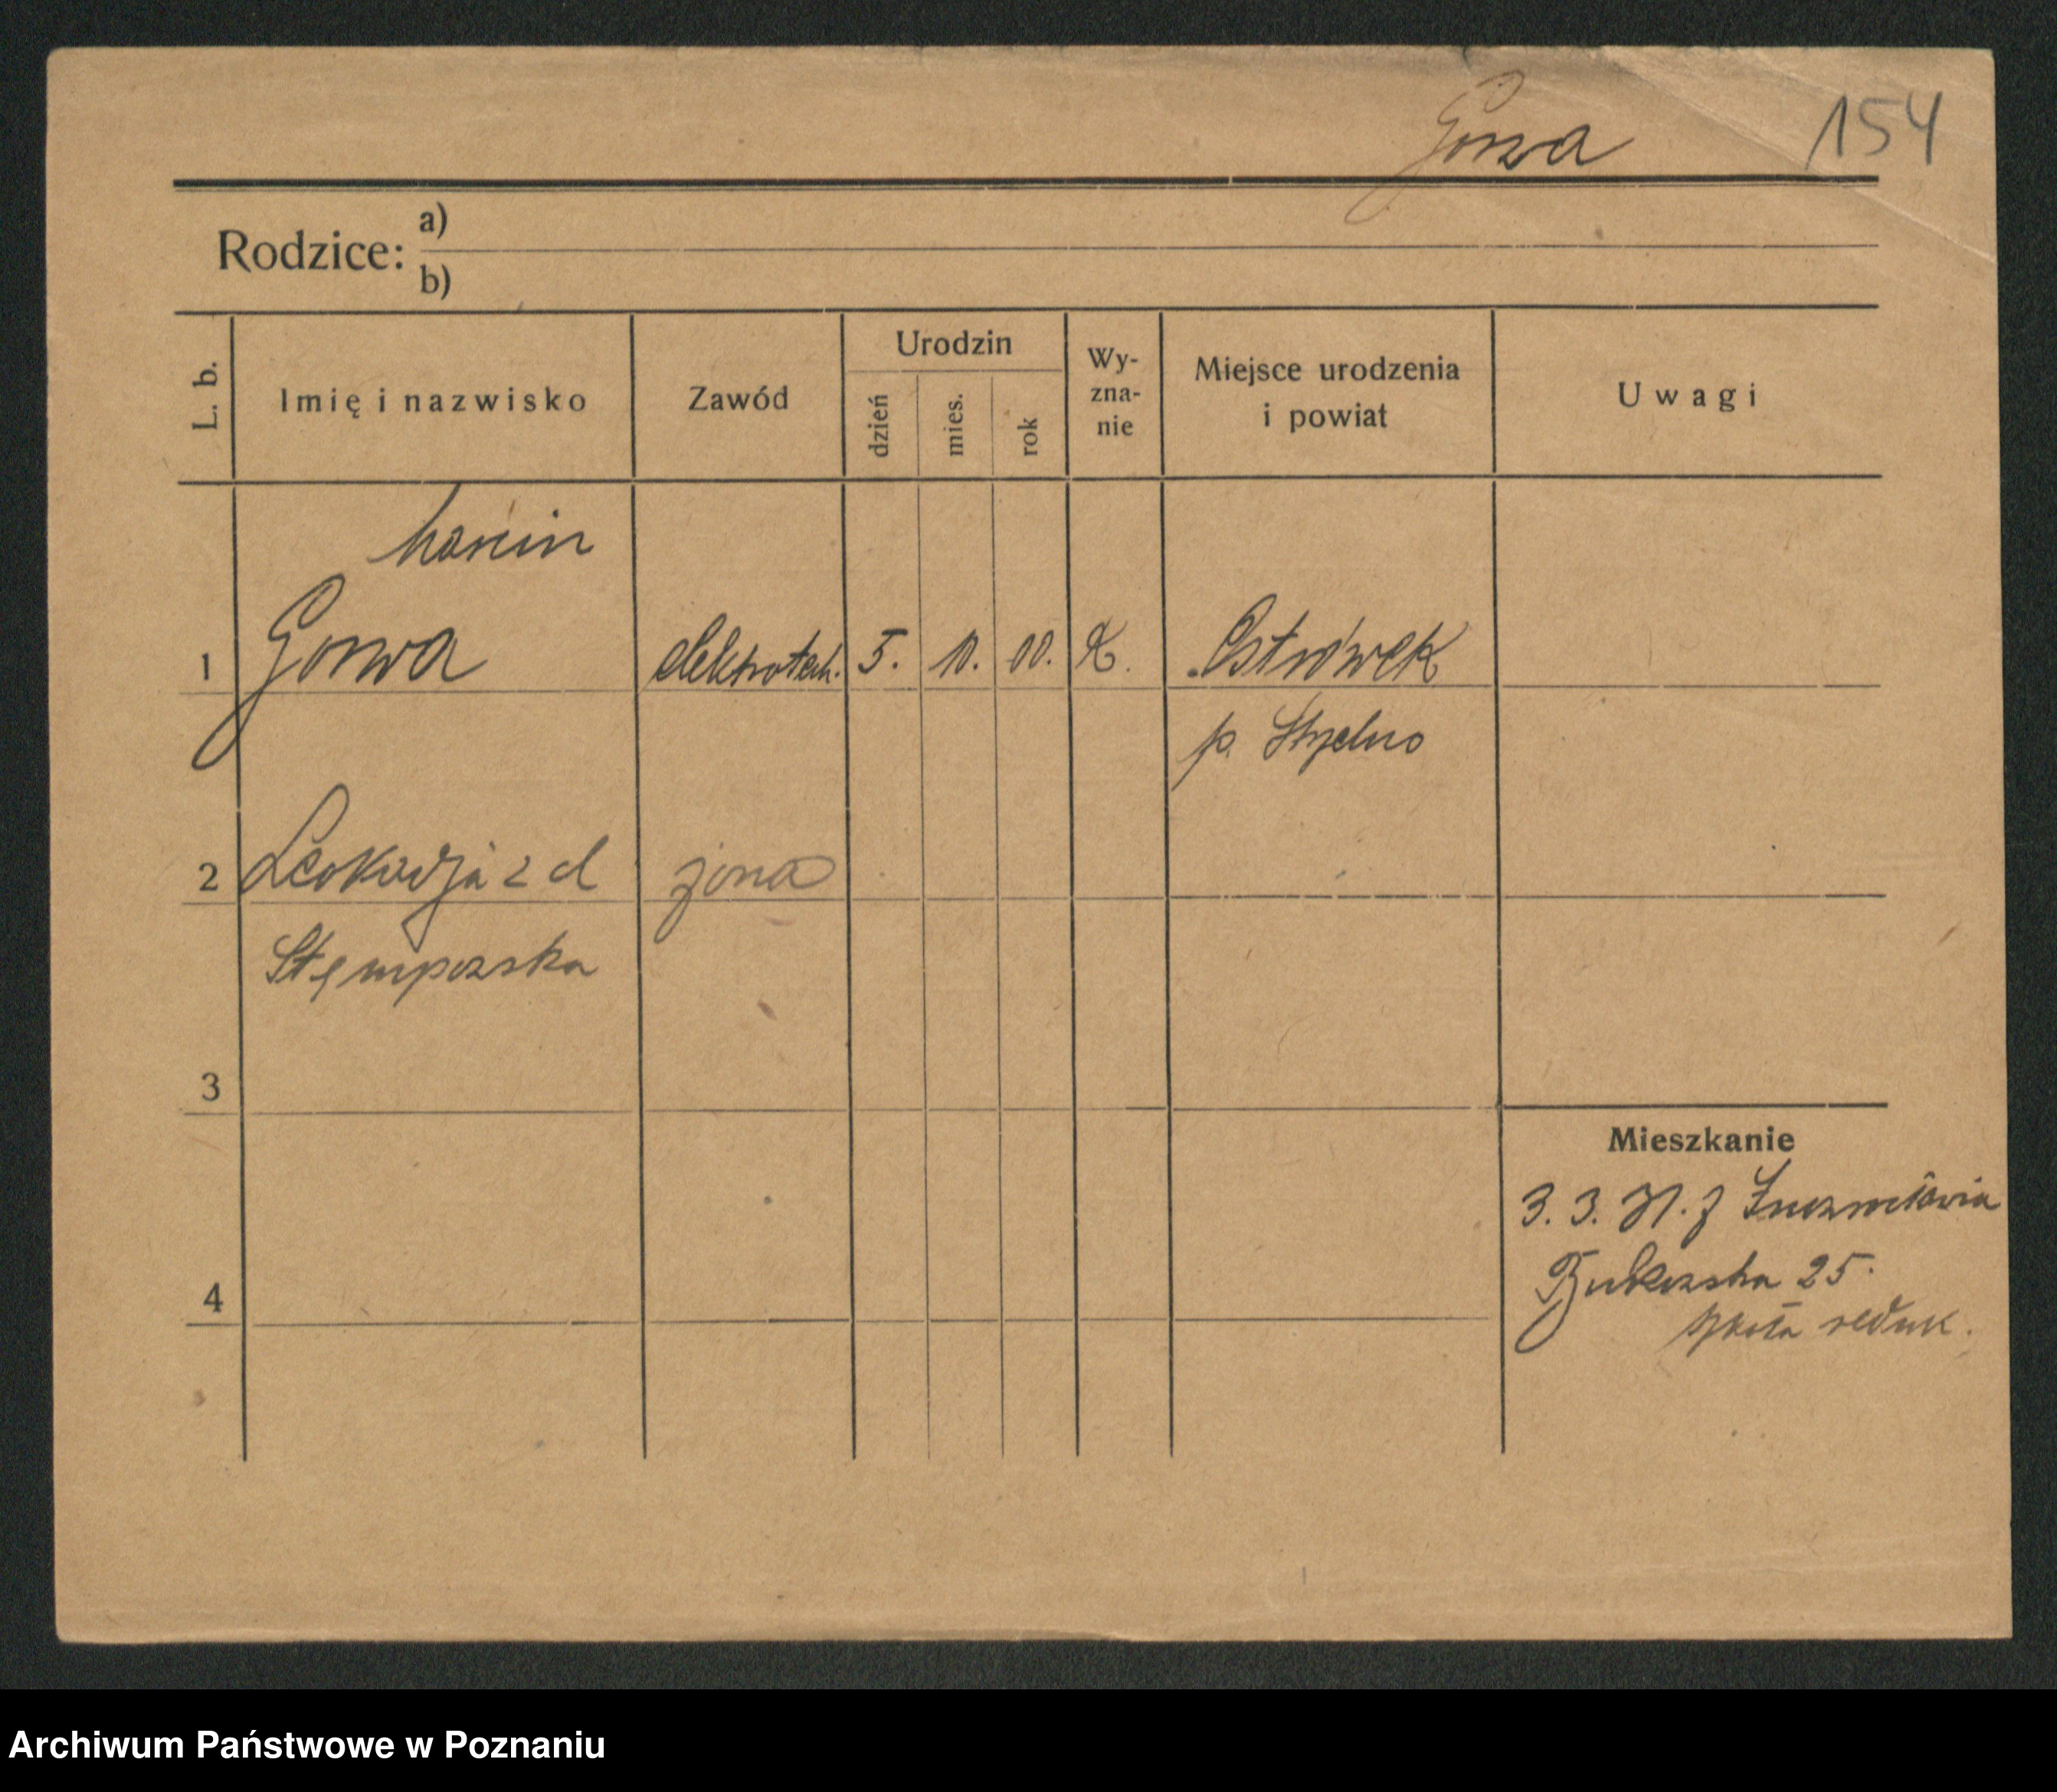 Gorwa 154
Rodzice: a)
b)
L. b. Imię i nazwisko Zawód Urodzin dzień mies. rok Wy-zna-nie Miejsce urodzenia i powiat Uwagi
Marcin
1 Gorwa elektrotech. 5. 10. 00. K. Ostrówek
p. Strzelno
2 Leokadja z d żona
Stęmpozska
3
Mieszkanie
3. 3. 31. z Inowrocławia
Bukowska 25.
4
szkoła
Archiwum Państwowe w Poznaniu